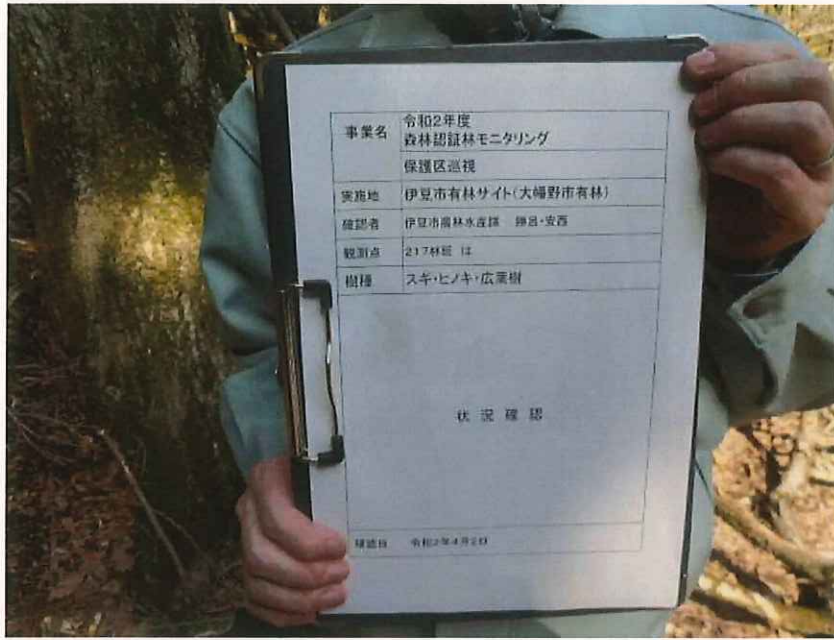 事業名 令和2年度
森林認証林モニタリング
保護区巡視
実施地 伊豆市有林サイト(大幡野市有林)
確認者 伊豆市農林水産課 勝呂・安西
観測点 217林班 は
樹種 スギ・ヒノキ・広葉樹
状況確認
確認日 令和2年4月2日